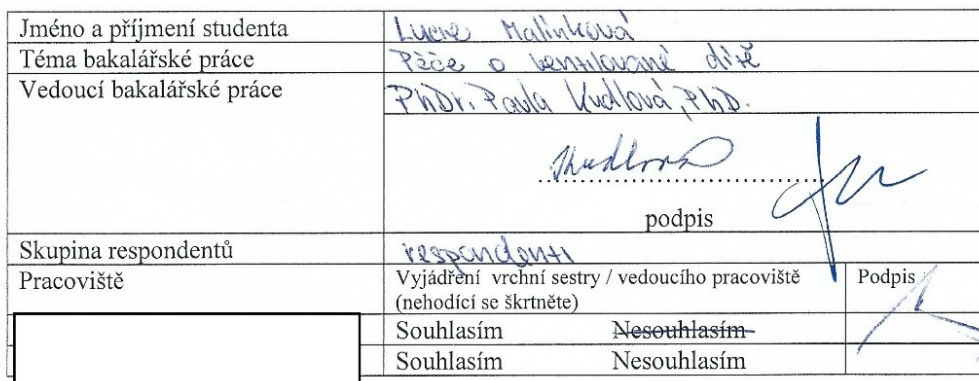 Jméno a příjmení studenta Lucie Malinková
Téma bakalářské práce Péče o ventilované dítě
Vedoucí bakalářské práce PhDr. Pavla Kudlová, PhD.
Kudlová
podpis
Skupina respondentů respondenti
Pracoviště Vyjádření vrchní sestry / vedoucího pracoviště Podpis
(nehodící se škrtněte)
Souhlasím Nesouhlasím
Souhlasím Nesouhlasím